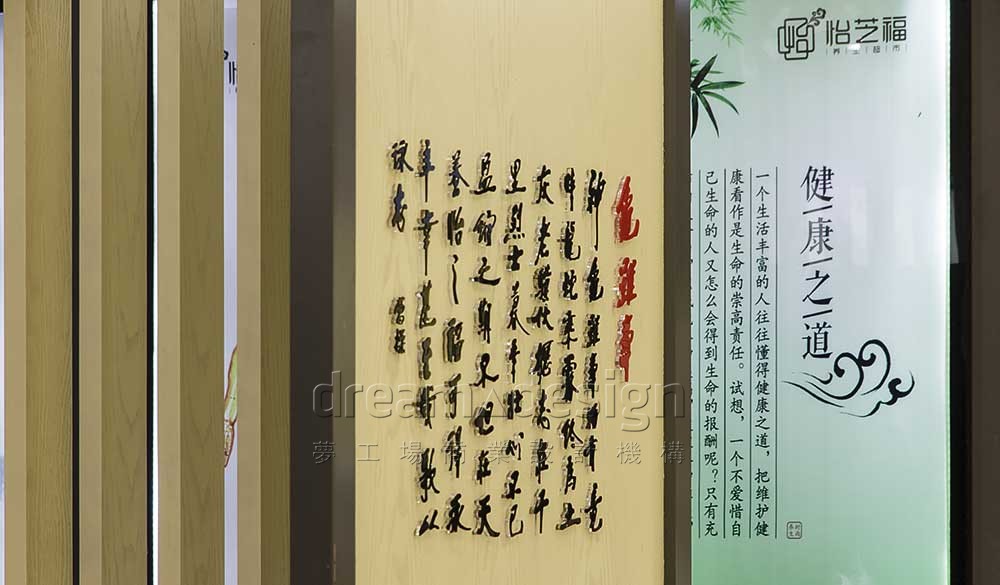 怡芝福
养生超市
健康之道
一个生活丰富的人往往懂得健康之道,把维护健
康看作是生命的崇高责任。试想,一个不爱惜自
己生命的人又怎么会得到生命的报酬呢?只有充
龜雖壽
神龜雖壽猶有竟
蛇乘霧終為土
灰老驥伏櫪志在千
里烈士暮年壯心不已
盈縮之期不但在天
養怡之福可得永
年幸甚至哉歌以
詠志 曹操
dream design
夢工場商業設營機構